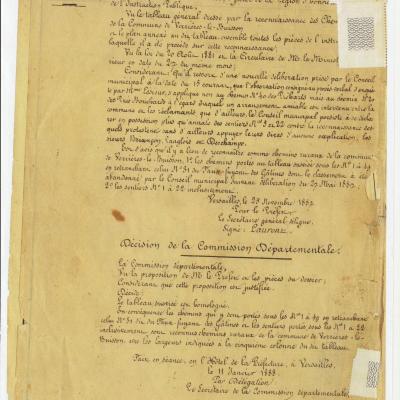 de l'Instruction Publique.
Vu le tableau général dressé par la reconnaissance des Chemins
de la Commune de Verrières-le-Buisson
et le plan annexé au du tableau, ensemble toutes les pièces de l'instruction
laquelle il a été procédé sur cette reconnaissance;
Vu la loi du 20 Août 1881 et la Circulaire de M. le Ministre
rieur en date du 23 du même mois;
Considérant qu'il ressort d'une nouvelle délibération prise par le Conseil
municipal à la date du 18 courant, que l'observation consignée au procès verbal d'enquête
par M. s'applique non au chemin N° 40 des mais au chemin N° 30
des Prés Bouchard à l'égard duquel un arrangement amiable est intervenu entre la
commune et les réclamants que d'ailleurs le Conseil municipal persiste à se déclarer
en possession plus qu'annale des sentiers N° 3 et 22 contre la reconnaissance desquels
protestent sans d'ailleurs appuyer leurs dires d'aucune explication, les
sieurs Langlois et Deschamps.
Est d'avis qu'il y a lieu de reconnaître comme chemins ruraux de la commune
de Verrières-le-Buisson 1° les chemins portés au tableau susvisé sous les N° 1 à 49
en retranchant celui N° 31 du Faux-fuyant des Gâtines dont le classement a été
abandonné par le Conseil municipal suivant délibération du 27 Mai 1882
2° les sentiers N° 1 à 22 inclusivement.
Versailles, le 25 Novembre 1882
Pour le Préfet
Le Secrétaire général délégué.
Signé: Laurens
Décision de la Commission Départementale.
La Commission départementale,
Vu la proposition de M. le Préfet et les pièces du dossier;
Considérant que cette proposition est justifiée.
Décide:
Le tableau susvisé est homologué.
En conséquence les chemins qui y sont portés sous les N° 1 à 49 en retranchant
celui N° 31 dit du Faux-fuyant des Gâtines et les sentiers portés sous les N° 1 à 22
inclusivement sont reconnus chemins ruraux de la commune de Verrières-le-
Buisson, avec les largeurs indiquées à la cinquième colonne du dit tableau.
Fait en séance, en l'Hôtel de la Préfecture, à Versailles,
le 11 Janvier 1883.
Par Délégation
Le Secrétaire de la Commission départementale,